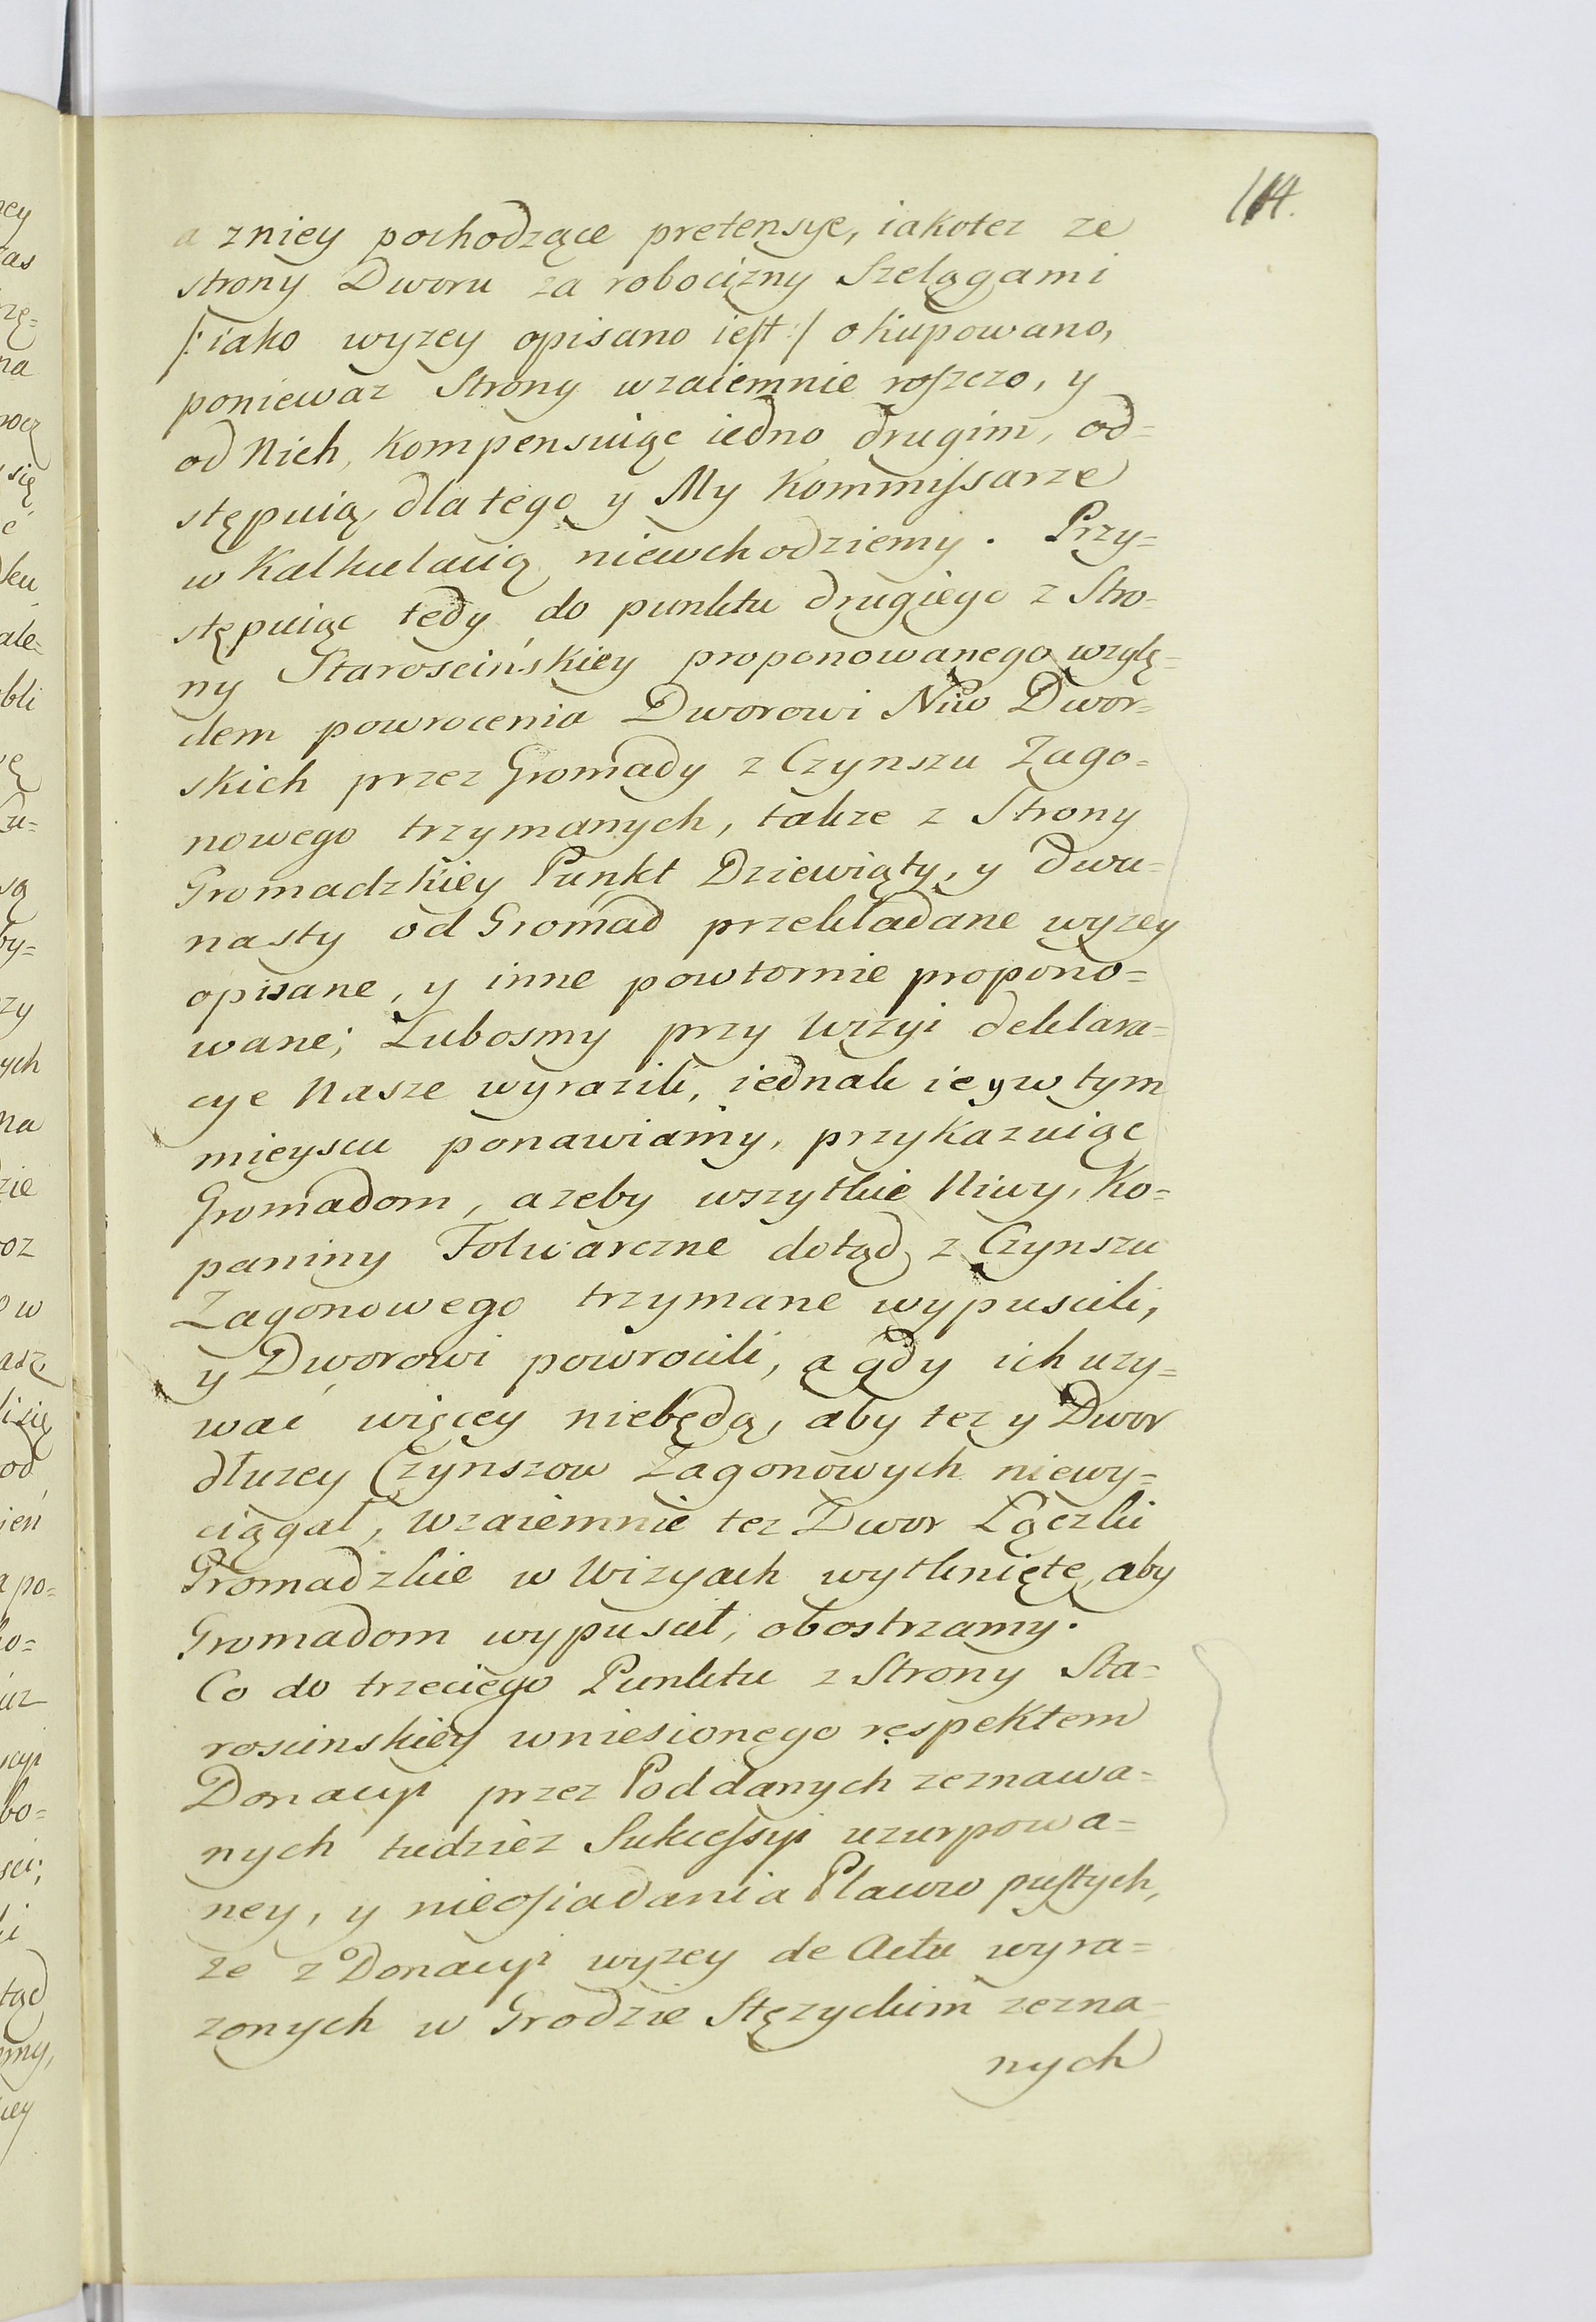 114.
a zniey pochodzące pretensye, iakotez ze
strony Dworu za robocizny Szelągami
/: iako wyzey opisano iest :/ okupowano,
poniewaz Strony wzaiemnie roszczo, y
od Nich, Kompensuiąc iedno drugim, od=
stępuią, dlatego y My Kommissarze
w Kalkulacią niewchodziemy. Przy=
stępuiąc tedy do punktu drugiego z Stro=
ny Starościńskiey proponowanego wzglę=
dem powrocenia Dworowi Niw Dwor=
skich przez Gromady z Czynszu Zago=
nowego trzymanych, takze z Strony
Gromadzkiey Punkt Dziewiąty, y dwu=
nasty od Gromad przekładane wyzey
opisane, y inne powtornie propono=
wane; Lubosmy przy Wizyi deklara=
cye Nasze wyrazili, iednak ie y w tym
mieyscu ponawiamy, przykazuiąc
Gromadom, azeby wszytkie Niwy, Ko=
paniny Folwarczne dotąd z Czynszu
Zagonowego trzymane wypuscili,
y Dworowi powrocili, a gdy ich uzy=
wać więcey niebędą, aby tez y Dwor
dłuzey Czynszow Zagonowych niewy=
ciągał, wzaiemnie tez Dwor Łączki
Gromadzkie w Wizyach wytknięte, aby
Gromadom wypuscił, obostrzamy.
Co do trzeciego Punktu z Strony Sta=
roscinskiey wniesionego respektem
Donacyi przez Poddanych zeznawa=
nych tudziez Sukcessyi uzurpowa=
ney, y nieosiadania Placow pustych,
ze z Donacyi wyzey de Actu wyra=
zonych w Grodzie Stęzyckim zezna=
nych